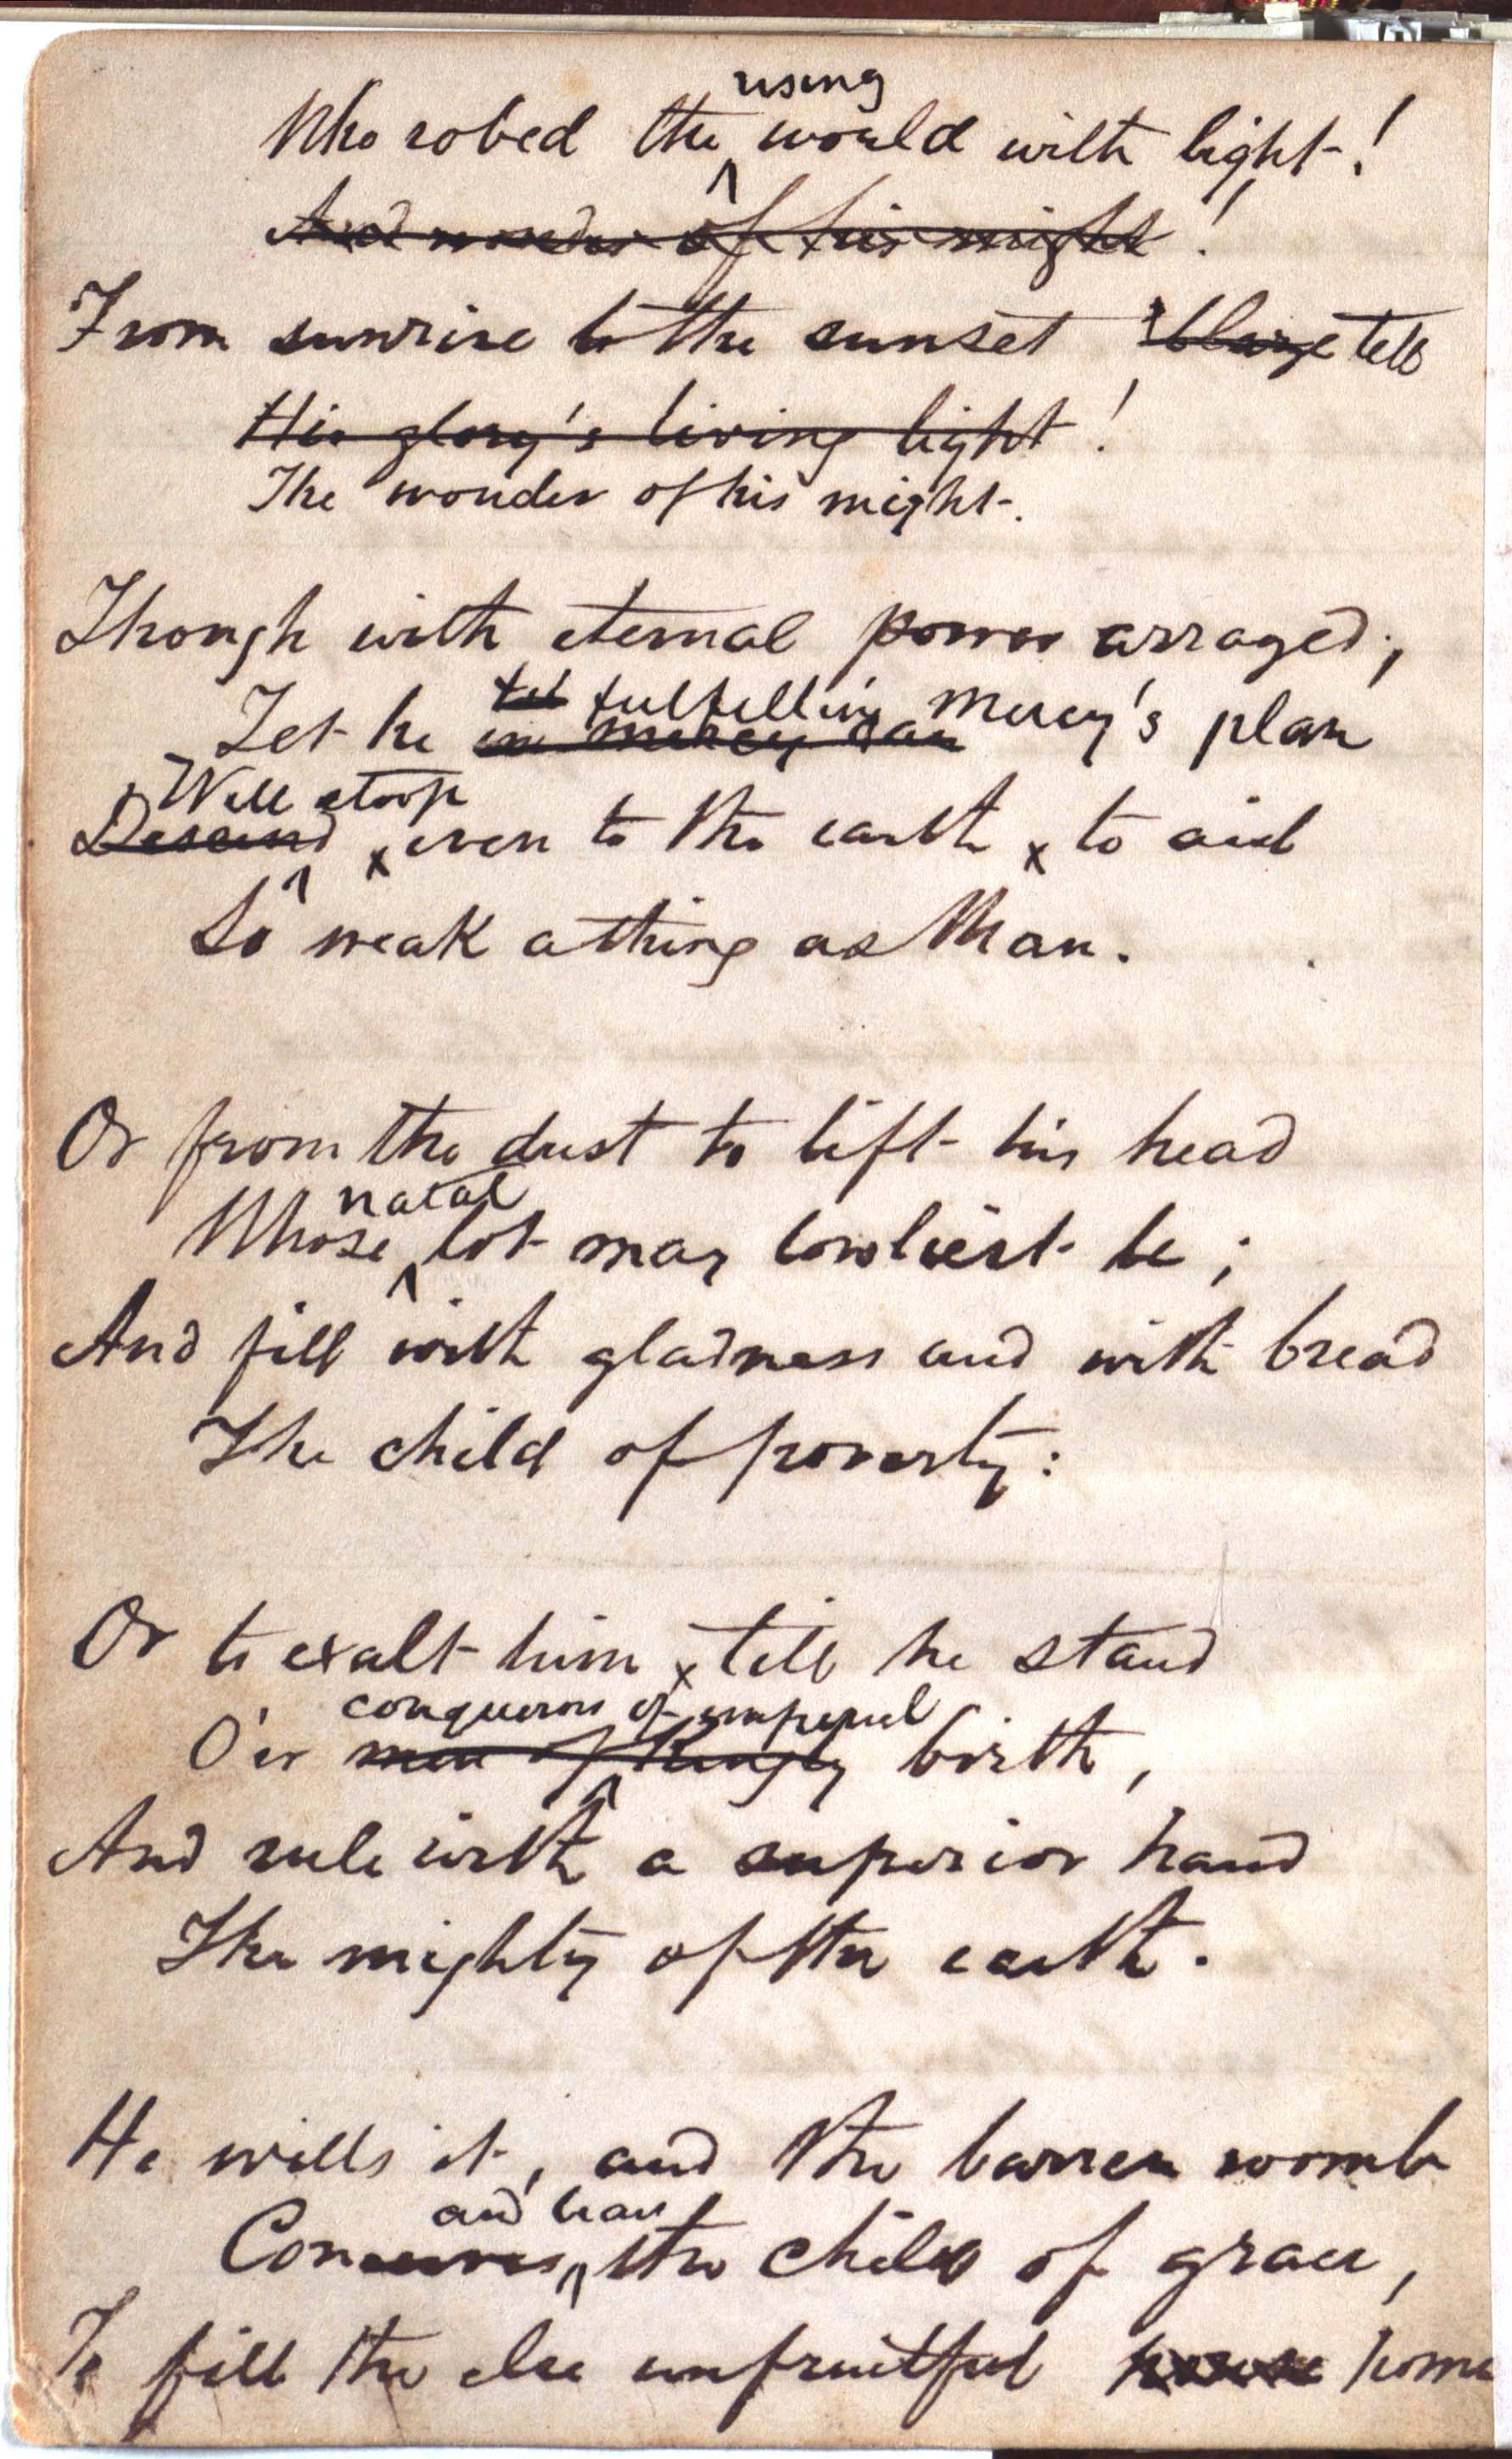 rising
Who robed the world with light!
And wonder of his might!
From sunrise to the sunset blaze tell
His glory's living light!
The wonder of his might.
Though with eternal power arraged;
fulfilling Mercy's plan
Yet he in mercy can
Will stoop
Descend x even to the earth x to aid
So weak a thing as Man.
Or from the dust to lift his head
natal
Whose lot may lowliest be;
And fill with gladness and with bread
The child of poverty:
Or to exalt him x till he stand
conquerors of imperial
O'er men of Kingly birth,
And rule with a superior hand
The mighty of the earth.
He wills it, and the barren womb
and bear
Conceives the child of grace,
To fill the else unfruitful house home